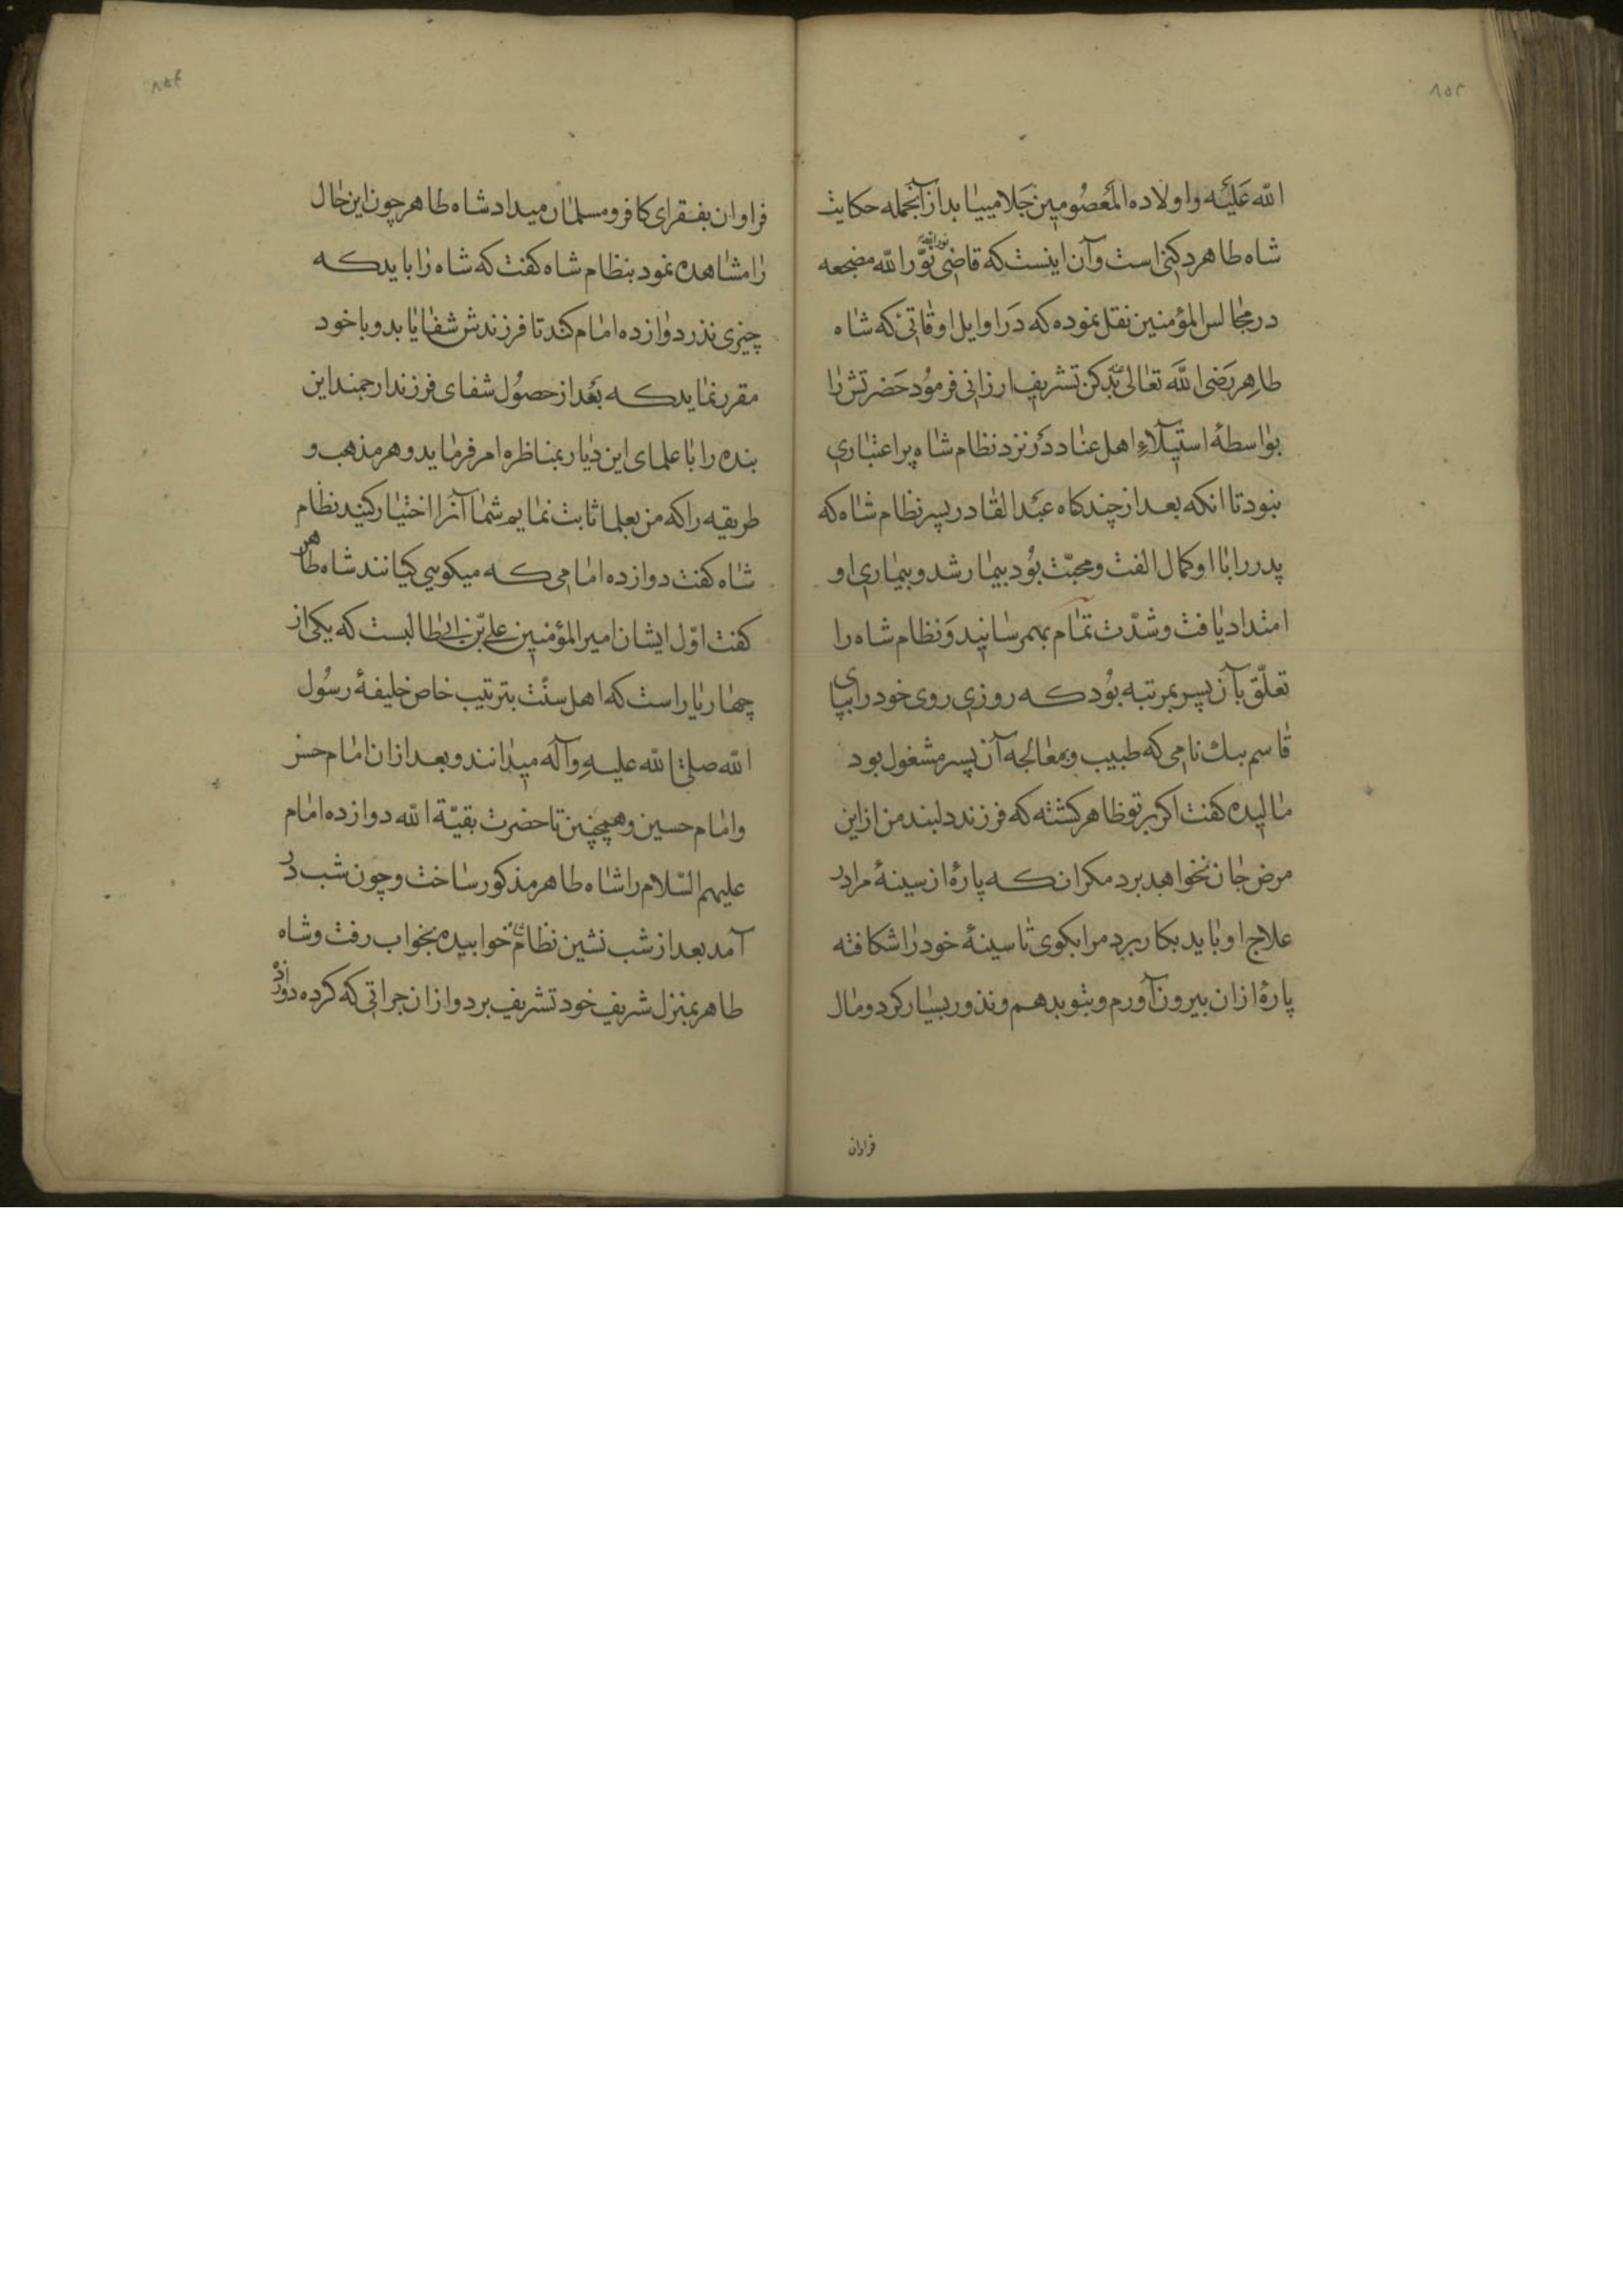 ۸۵۳
الله عَلَيْه واولاده المَعصُومين جَلا مييابد از آنجمله حكايت
شاه طاهر دكنی است وآن اينست كه قاضی نوّر الله مضجعه
نور الله
در مجالس المؤمنين نقل نموده كه دَر اوايل اوقاتئ كه شاه
طاهِر رَضی اللَّه تعٰالی بدكن تشريف ارزانی فرموُد حَضرتش را
بواسطهٔ استيلآءِ اهل عناد دَر نزد نظام شاه پر اعتباری
نبود تا انكه بعد از چند كاه عَبْد القادر پسر نظام شاه كه
پدر را با او كمال الفت ومحبّت بوُد بيمار شد وبيماری او
امتداد يافت وشدّت تمام بهمرسانيد وَنظام شاه را
تعلّق بآن پسر بمرتبه بوُد كه روزی روی خود را بپای
قاسم بيك نامی كه طبيب وبمعالجه آن پسر مشغول بود
ماليده كفت اكر بر تو ظاهر كشته كه فرزند دلبند من از اين
مرض جان نخواهد برد مكر انكه پارهٔ از سينهٔ مرا در
علاج او بايد بكار برد مرا بكوی تا سينهٔ خود را شكافته
پارهٔ از ان بيرون آورم وبتو بدهم ونذور بسيار كرد ومال
فراوان
۸۵۴
فراوان بفقرای كافر ومسلمان ميداد شاه طاهر چون اين حال
را مشاهده نمود بنظام شاه كفت كه شاه را بايد كه
چيزی نذر دوازده امام كند تا فرزندش شفا يابد وبا خود
مقرر نمايد كه بَعْد از حصوُل شفای فرزند ارجمند اين
بنده را با علمای اين ديار بمناظره امر فرمايد وهر مذهب و
طريقه را كه من بعلما ثابت نمايم شما آنرا اختيار كنيد نظام
شاه كفت دوازده امامی كه ميكويی كيانند شاه طاهر
كفت اوّل ايشان امير المؤمنين علی بن ابی طالبست كه يكی از
چهار يار است كه اهل سنّت بترتيب خاص خليفهٔ رسوُل
الله صلی الله عليهِ وآله ميدانند وبعد از ان امام حسن
وامام حسين وهمچنين تا حضرت بقيّة الله دوازده امام
عليهم السّلام را شاه طاهر مذكور ساخت وچون شب در
آمد بعد از شب نشين نظام شاه خوابيده بخواب رفت وشاه
طاهر بمنزل شريف خود تشريف برد واز ان جراتی كه كرده بود از